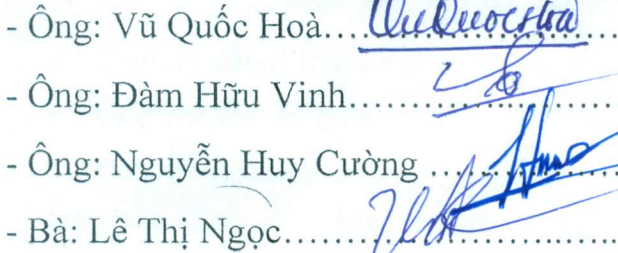 - Ông: Vũ Quốc Hoà...
- Ông: Đàm Hữu Vinh.......
- Ông: Nguyễn Huy Cường ....
- Bà: Lê Thị Ngọc...............